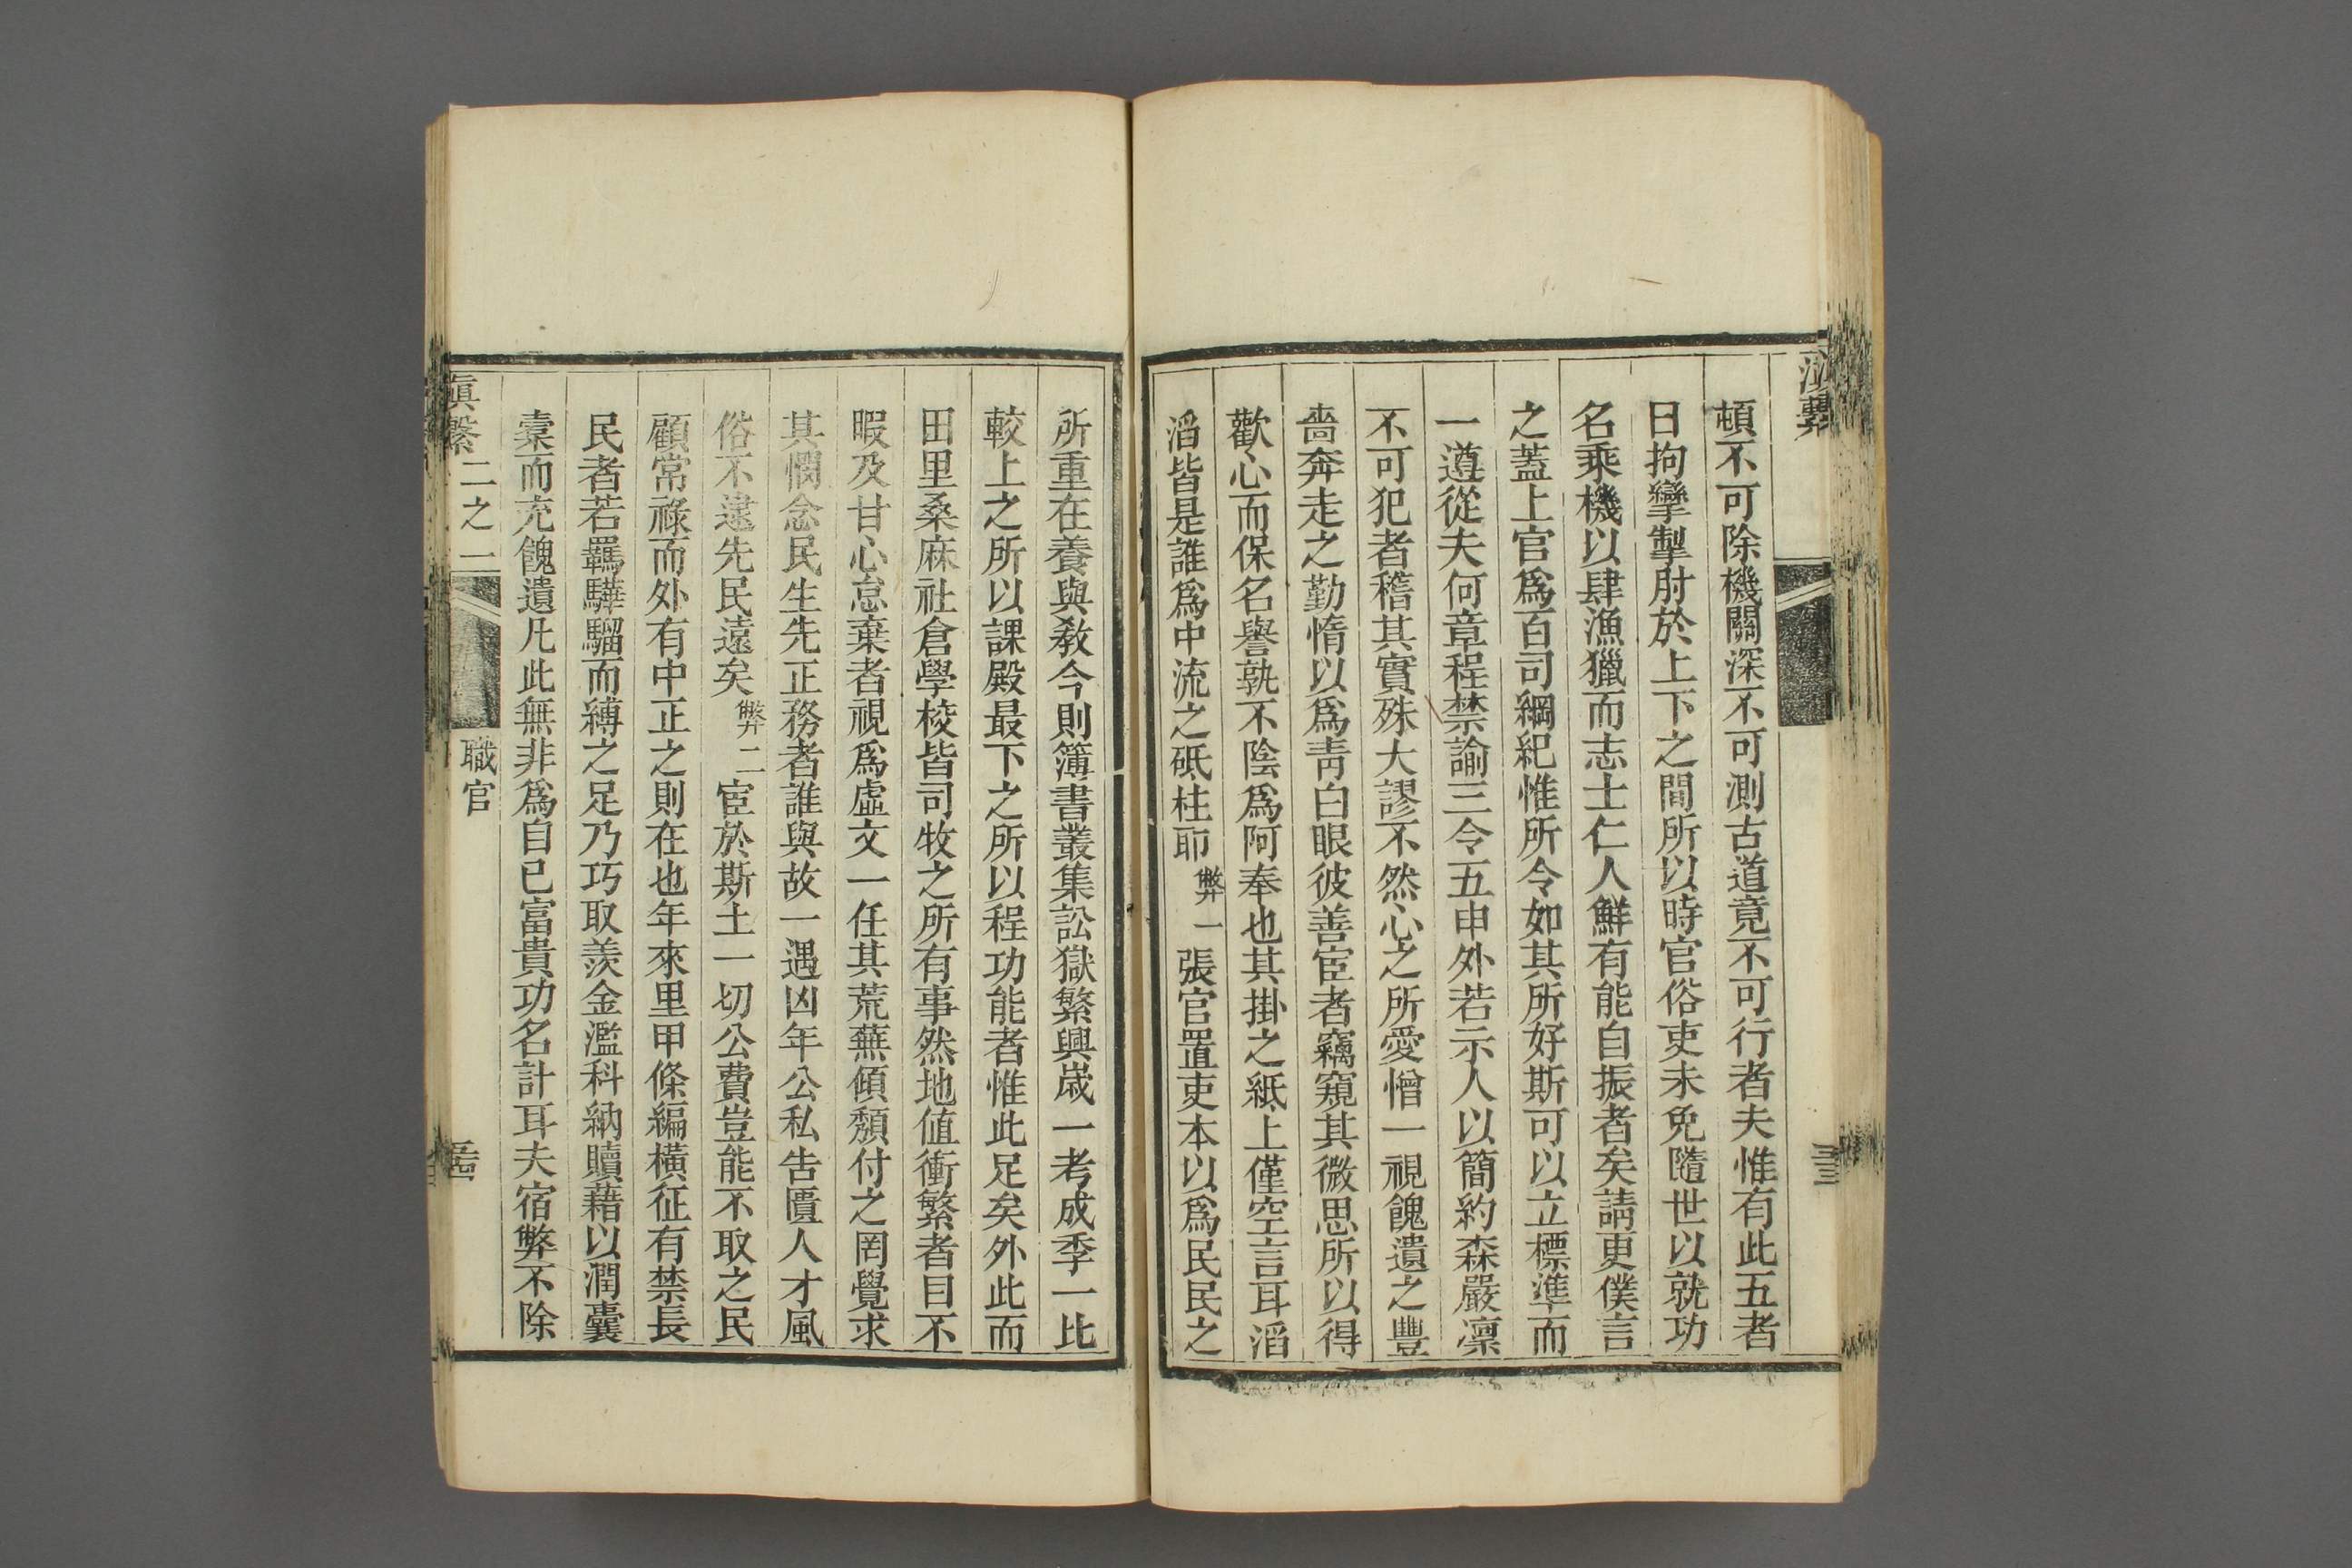 頓不可除機關深不可測古道竟不可行者夫惟有此五者
日拘攣掣肘於上下之間所以時官俗吏未免隨世以就功
名乘機以肆漁獵而志士仁人鮮有能自振者矣請更僕言
之蓋上官爲百司綱紀惟所令如其所好斯可以立標準而
一遵從夫何章程禁諭三令五申外若示人以簡約森嚴凛
不可犯者稽其實殊大謬不然心之所愛憎一視餽遺之豐
嗇奔走之勤惰以爲靑白眼彼善宦者竊窺其微思所以得
歡心而保名譽孰不陰爲阿奉也其掛之紙上僅空言耳滔
滔皆是誰爲中流之砥柱耶 弊一 張官置吏本以爲民民之
所重在養與敎今則簿書叢集訟獄繁興歲一考成季一比
較上之所以課殿最下之所以程功能者惟此足矣外此而
田里桑麻社倉學校皆司牧之所有事然地值衝繁者目不
暇及甘心怠棄者視爲虛文一任其荒蕪傾頹付之罔覺求
其憫念民生先正務者誰與故一遇凶年公私告匱人才風
俗不逮先民遠矣 弊二 宦於斯土一切公費豈能不取之民
顧常祿而外有中正之則在也年來里甲條編橫征有禁長
民者若羈驊騮而縛之足乃巧取羨金濫科納贖藉以潤囊
橐而充餽遺凡此無非爲自已富貴功名計耳夫宿弊不除
滇繫 二之一 職官